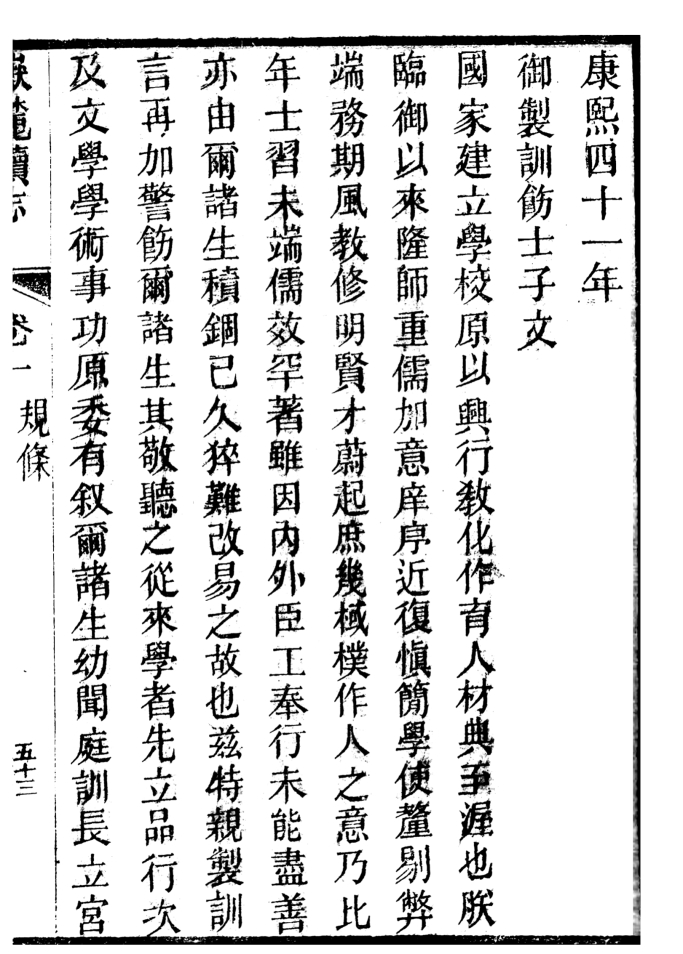 康熙四十一年
御製訓飭士子文
國家建立學校原以興行教化作育人材典至渥也朕
臨御以來隆師重儒加意庠序近復慎簡學使釐剔弊
端務期風教修明賢才蔚起庶幾棫樸作人之意乃比
年士習未端儒效罕著雖因內外臣工奉行未能盡善
亦由爾諸生積錮已久猝難改易之故也茲特親製訓
言再加警飭爾諸生其敬聽之從來學者先立品行次
及文學學術事功原委有叙爾諸生幼聞庭訓長立宮
嶽麓續志 卷一 規條 五十三